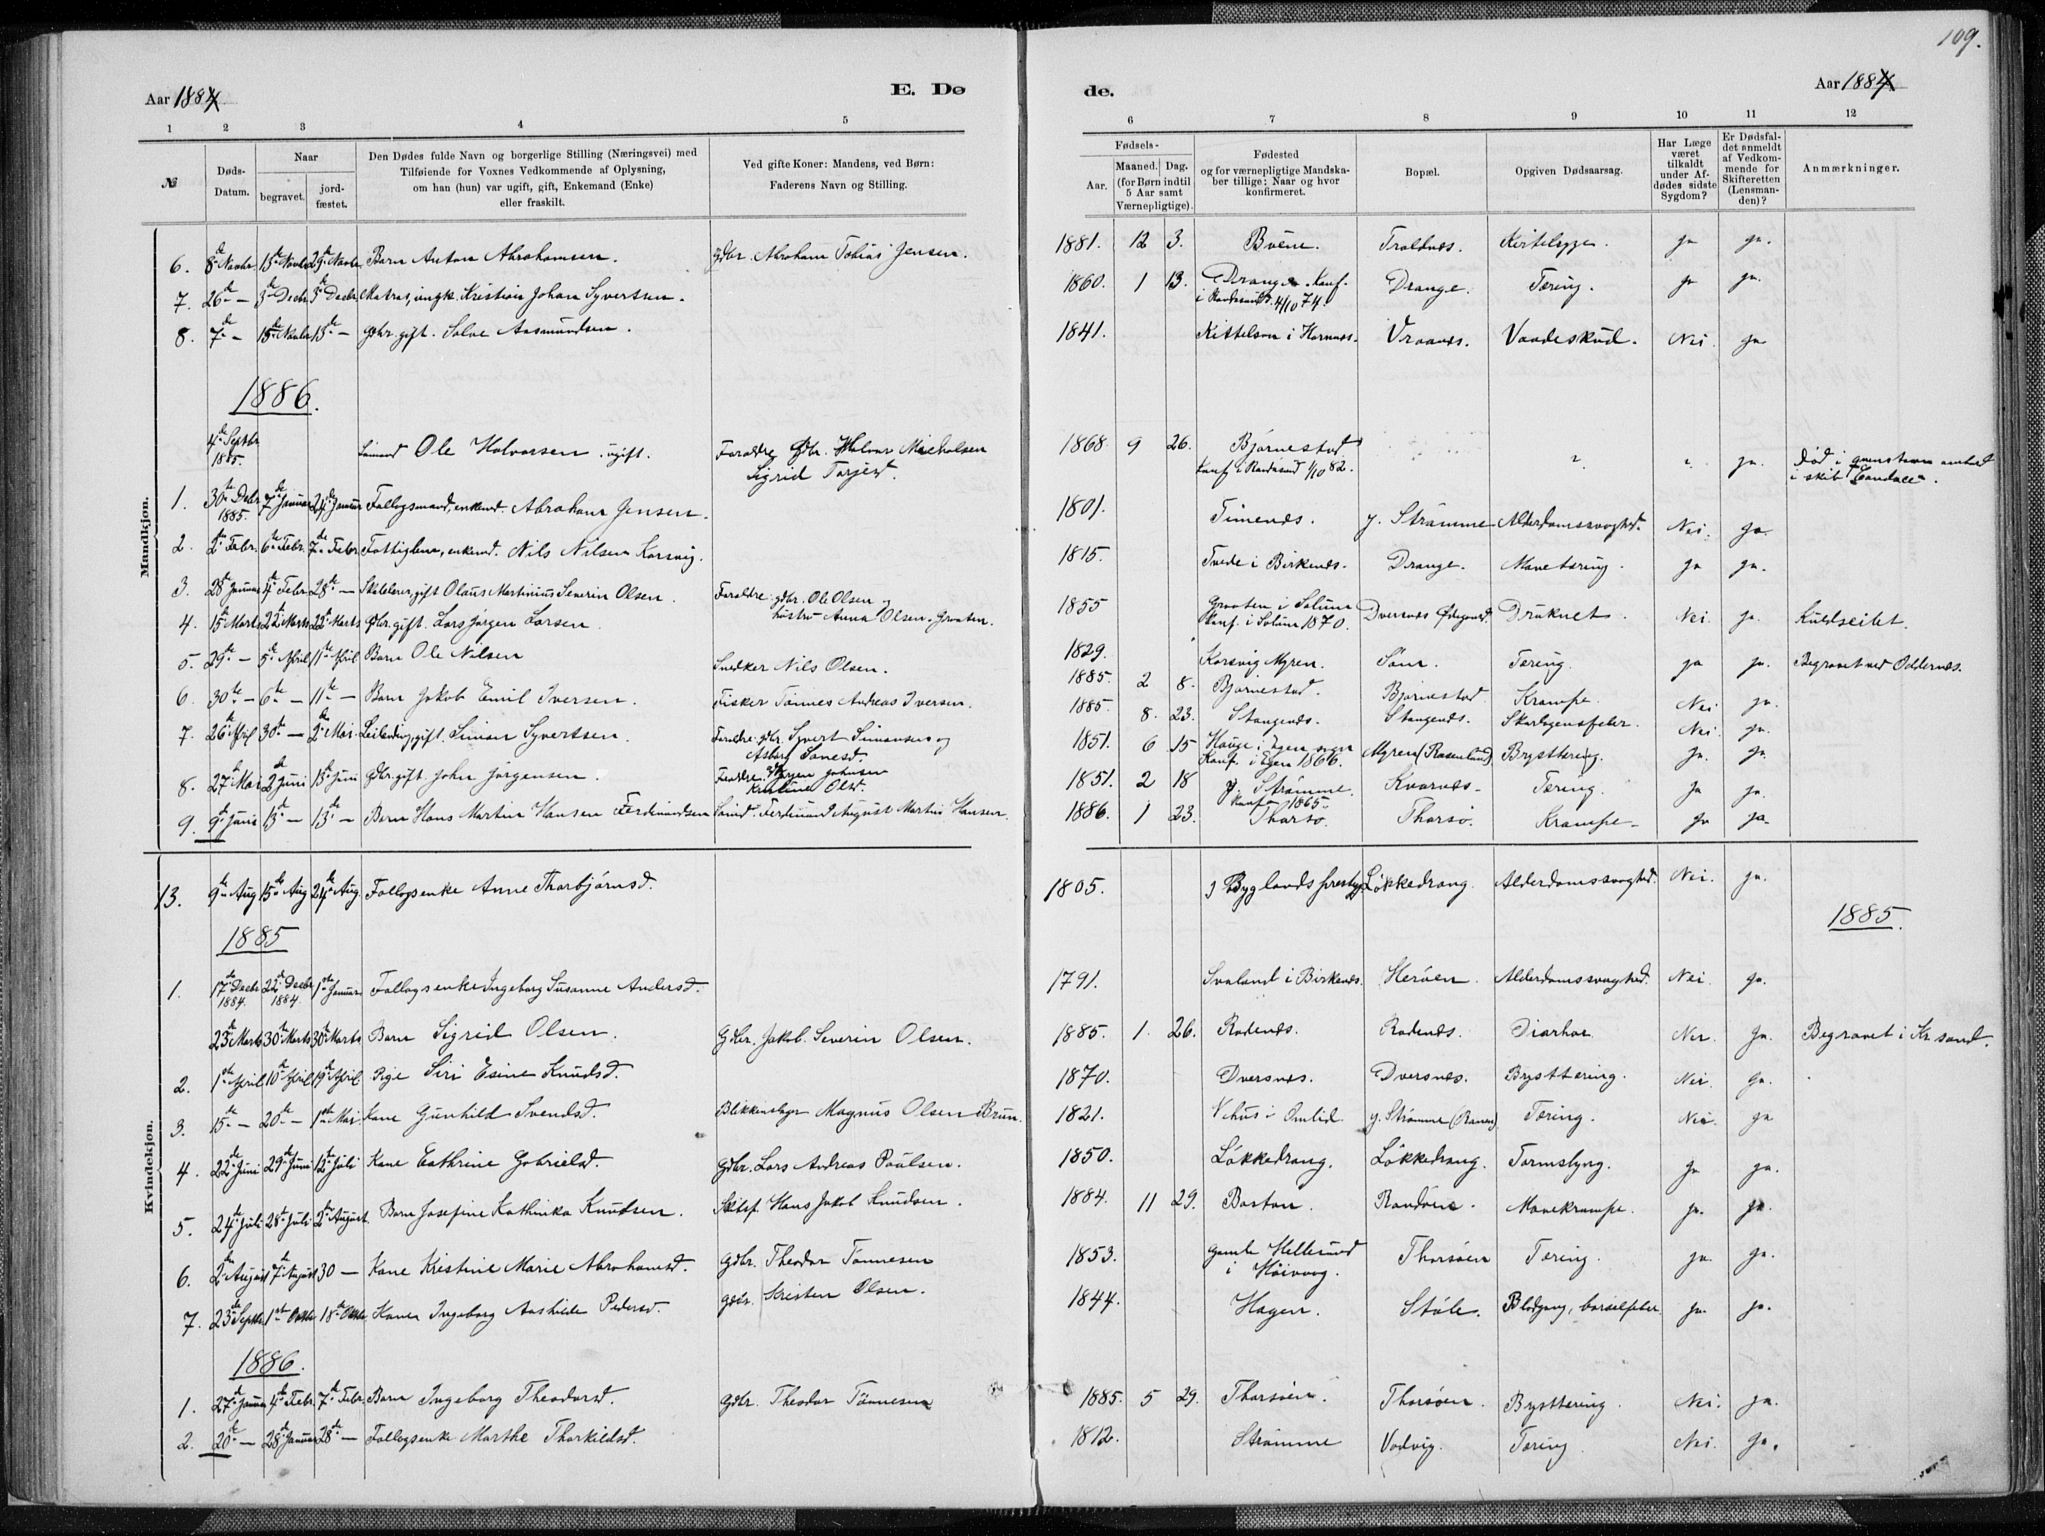 109.
Aar 1884 E. Dø de. Aar 1884
1 2 3 4 5 6 7 8 9 10 11 12
№
Døds-Datum.
Naar
begravet.
jord-fæstet.
Den Dødes fulde Navn og borgerlige Stilling (Næringsvei) med
Tilføiende for Voxnes Vedkommende af Oplysning,
om han (hun) var ugift, gift, Enkemand (Enke)
eller fraskilt.
Ved gifte Koner: Mandens, ved Børn:
Faderens Navn og Stilling.
Fødsels-
Aar.
Maaned. Dag.
(for Børn indtil
5 Aar samt
Værnepligtige).
Fødested
og for værnepligtige Mandska-
ber tillige: Naar og hvor
konfirmeret.
Bopæl.
Opgiven Dødsaarsag.
Har Læge
været
tilkaldt
under Af-
dødes sidste
Sygdom?
Er Dødsfal-
det anmeldt
af Vedkom-
mende for
Skifteretten
(Lensman-
den)?
Anmærkninger.
Mandkjøn.
6. 8de Novbr 15de Novbr 29de Novbr Barn Anton Abrahamsen. Gdbr. Abraham Tobias Jensen. 1881. 12 3. Boëne. Troldnes. Kirtelsyge. ja ja.
7. 26de — 3de Decbr 3de Decbr Matros, ungk. Kristian Johan Syvertsen. 1860. 1 13. Drange. Konf. i Randesund 4/10 74. Drange. Tæring. ja ja.
8. 7de — 15de Novbr 15de — Gdbr. gift. Salve Aasmundsen. 1841. Kittelson i Hornnes. Vraanes. Vaadeskud. Nei. ja
1886.
4de Septbr 1885. Sømand Ole Halvorsen ugift. Forældre Gdbr. Halvor Michalsen
Sigrid Torjesd. 1868 9 26. Bjørnestad
Konf i Randesund 1/10 82. " " ja. Død i
i skib
1. 30te Decbr 1885. 7de Januar 24de Januar Follogsmand, enkemd. Abraham Jensen. 1801. Timenes. y. Strømme Alderdomssvaghed. Nei. ja.
2. 2de Febr. 6te Febr. 7de Febr Fattiglem, enkemd. Nils Nilsen Korsvig. 1815. Tvede i Birkenes. Drange. Mavetæring. ja ja.
3. 28de Januar 4de Febr 28de — Skibstører, gift Olaus Martinius Severin Olsen. Forældre: gdbr. Ole Olsen og
hustru Anna Olsen. Graaten. 1855 Graaten i Solum
Konf. i Solum 1870. Dversnes Ødegaard. Druknet. Nei. ja. Kuldseilet.
4. 15de Marts 22de Marts 22de Marts Gdbr. gift. Lars Jørgen Larsen. 1829. Korsvig Myren. Søm. Tæring. ja ja. Begravet ved Oddernes.
5. 29de — 5te April 11te April Barn Ole Nilsen Snedker Nils Olsen. 1885. 2 8. Bjørnestad. Bjørnestad Krampe. Nei ja.
6. 30te — 6te — 11te — Barn Jakob Emil Iversen. Fisker Tønnes Andreas Iversen. 1885. 8. 23. Stangenes. Stangenes. Skarlagensfeber. Nei. ja.
7. 26de April 30te — 2de Mai. Leilending, gift. Simon Syvertsen. Forældre: gdbr. Syvert Simonsen og
Asberg Tønesd. 1851. 6 15 Hauge i Egen sogn
Konf. i Egen 1866. Myren (Rosenlund) Brysttæring. ja. ja.
8. 27de Mai 2den Juni 13de Juni Gdbr. gift. John Jørgensen. Forældre Jørgen Johnsen
Kristine Olsd. 1851. 2 18 y. Strømme.
Konf. 1865. Kvarnes. Tæring. ja ja.
9. 9de Juni 13de — 13de — Barn Hans Martin Hansen Ferdinandsen Sømd. Ferdinand August Martin Hansen. 1886. 1 23. Thorsø. Thorsø. Krampe. ja ja.
Kvindekjøn.
13. 9de Aug 15de Aug 24de Aug. Follogsenke Anne Thorbjørnsd. 1805. Byglands præstgj. Løkkedrang. Alderdomssvaghed. Nei. ja.
1885 1885.
1. 17de Decbr 1884. 22de Decbr 1884 1ste Januar Follogsenke Ingeborg Susanne Andersd. 1791. Svaland i Birkenes. Herøen. Alderdomssvaghed. Nei. ja.
23de Marts 30te Marts 30te Marts Barn Sigrid Olsen. Gdbr. Jakob Severin Olsen. 1885. 1. 26. Rodenes. Rodenes. Diarhoe. Nei. ja. Begravet i Kr.sand.
2. 1ste April 10de April 19de April Pige Siri Esine Knudsd. 1870. Dversnes. Dversnes. Brysttæring. Nei. ja.
3. 15de — 20de — 1ste Mai. Kone Gunhild Svendsd. Blikkenslager Magnus Olsen Brun. 1821. Vehus i Omlid. y. Strømme (Ranen). Tæring. Nei. ja
4. 22de Juni 29de Juni 12te Juli Kone Cathrine Gabrielsd. Gdbr. Lars Andreas Paulsen. 1850. Løkkedrang. Løkkedrang. Tarmslyng. ja ja.
5. 24de Juli 28de Juli 2den August Barn Josefine Kathinka Knudsen. Skibsf. Hans Jakob Knudsen. 1884. 11 29. Boston. Randøen. Mavekrampe. ja. ja.
6. 2den August 7de August 30 — Kone Kristine Marie Abrahamsd. Gdbr. Theodor Tønnesen 1853. Gamle Hellesund
i Høivaag. Thorsøen Tæring. ja. ja.
7. 23de Septbr 1ste Oktbr 18de Oktbr Kone Ingeborg Aashilde Pedersd. Gdbr. Kristen Olsen. 1844. Hagen. Støle. Blodgang, barselfeber. ja. ja.
1886.
1. 27de Januar 4de Febr. 7de Febr. Barn Ingeborg Theodorsd. Gdbr. Theodor Tønnesen 1885. 5 29. Thorsøen. Thorsøen. Brysttæring. Nei. ja.
2. 20de — 28de Januar 28de — Follogsenke Marthe Thorkildsd. 1812. Strømme Vodvig. Tæring. Nei. ja.